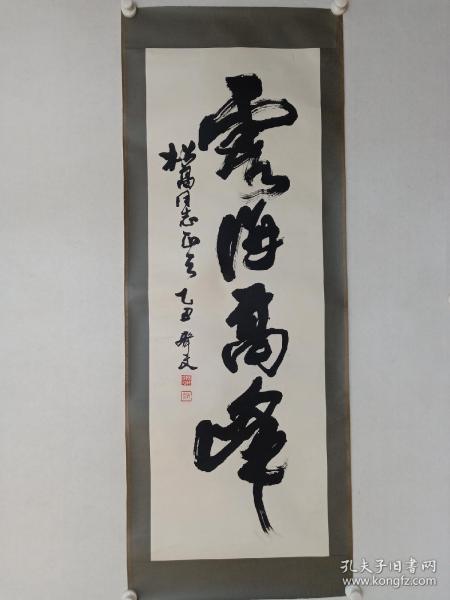 云海高峰
松高同志正之 乙丑
孔夫子旧书网
www.kongfz.com